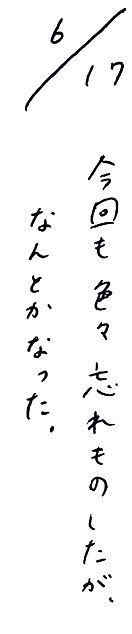 6/17
今回も色々忘れものしたが、
なんとかなった.